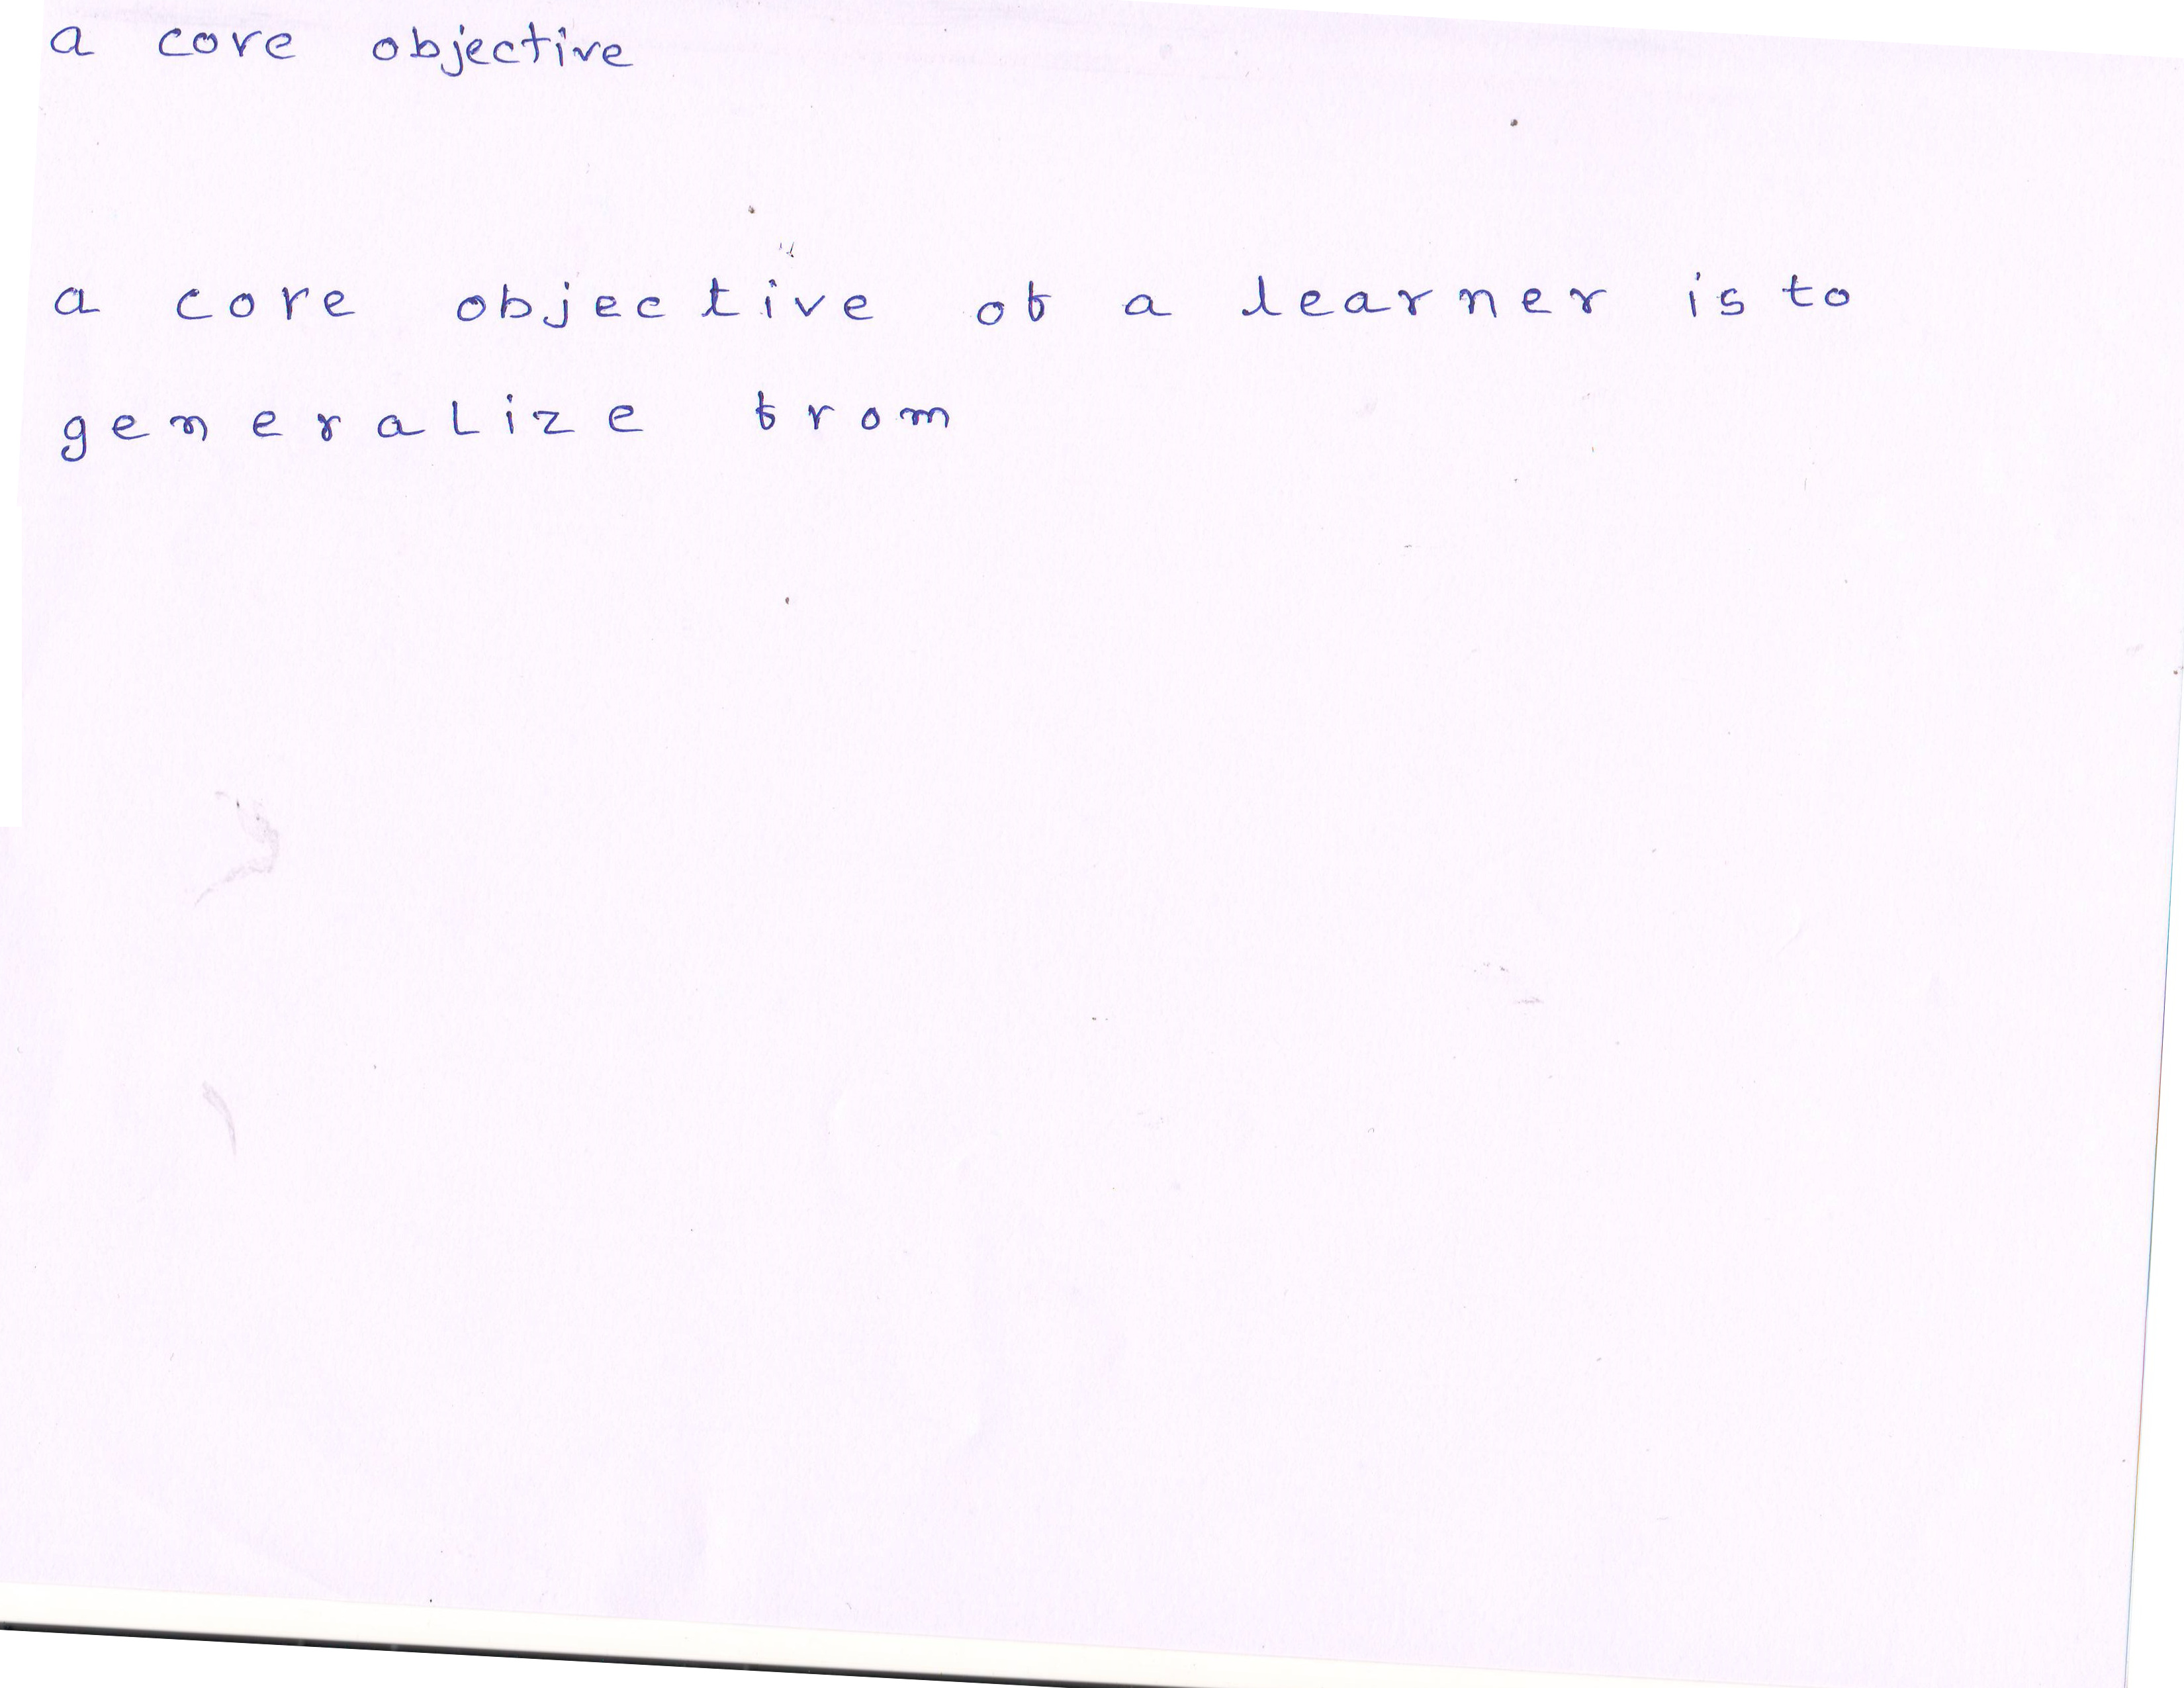 a core objective
a core objective of a learner is to
generalize from